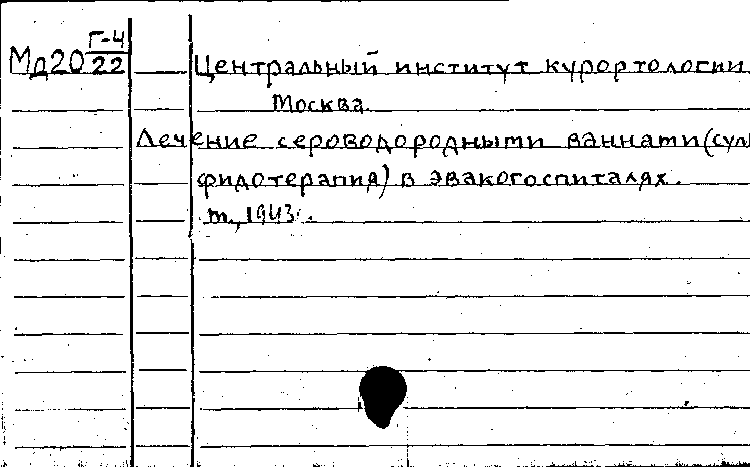 Г-4
Мд20 22
Центральный институт курортологии
Москва.
Лечение сероводородными ваннами (суль
фидотерапия) в эвакогоспиталях.
М., 1943г.